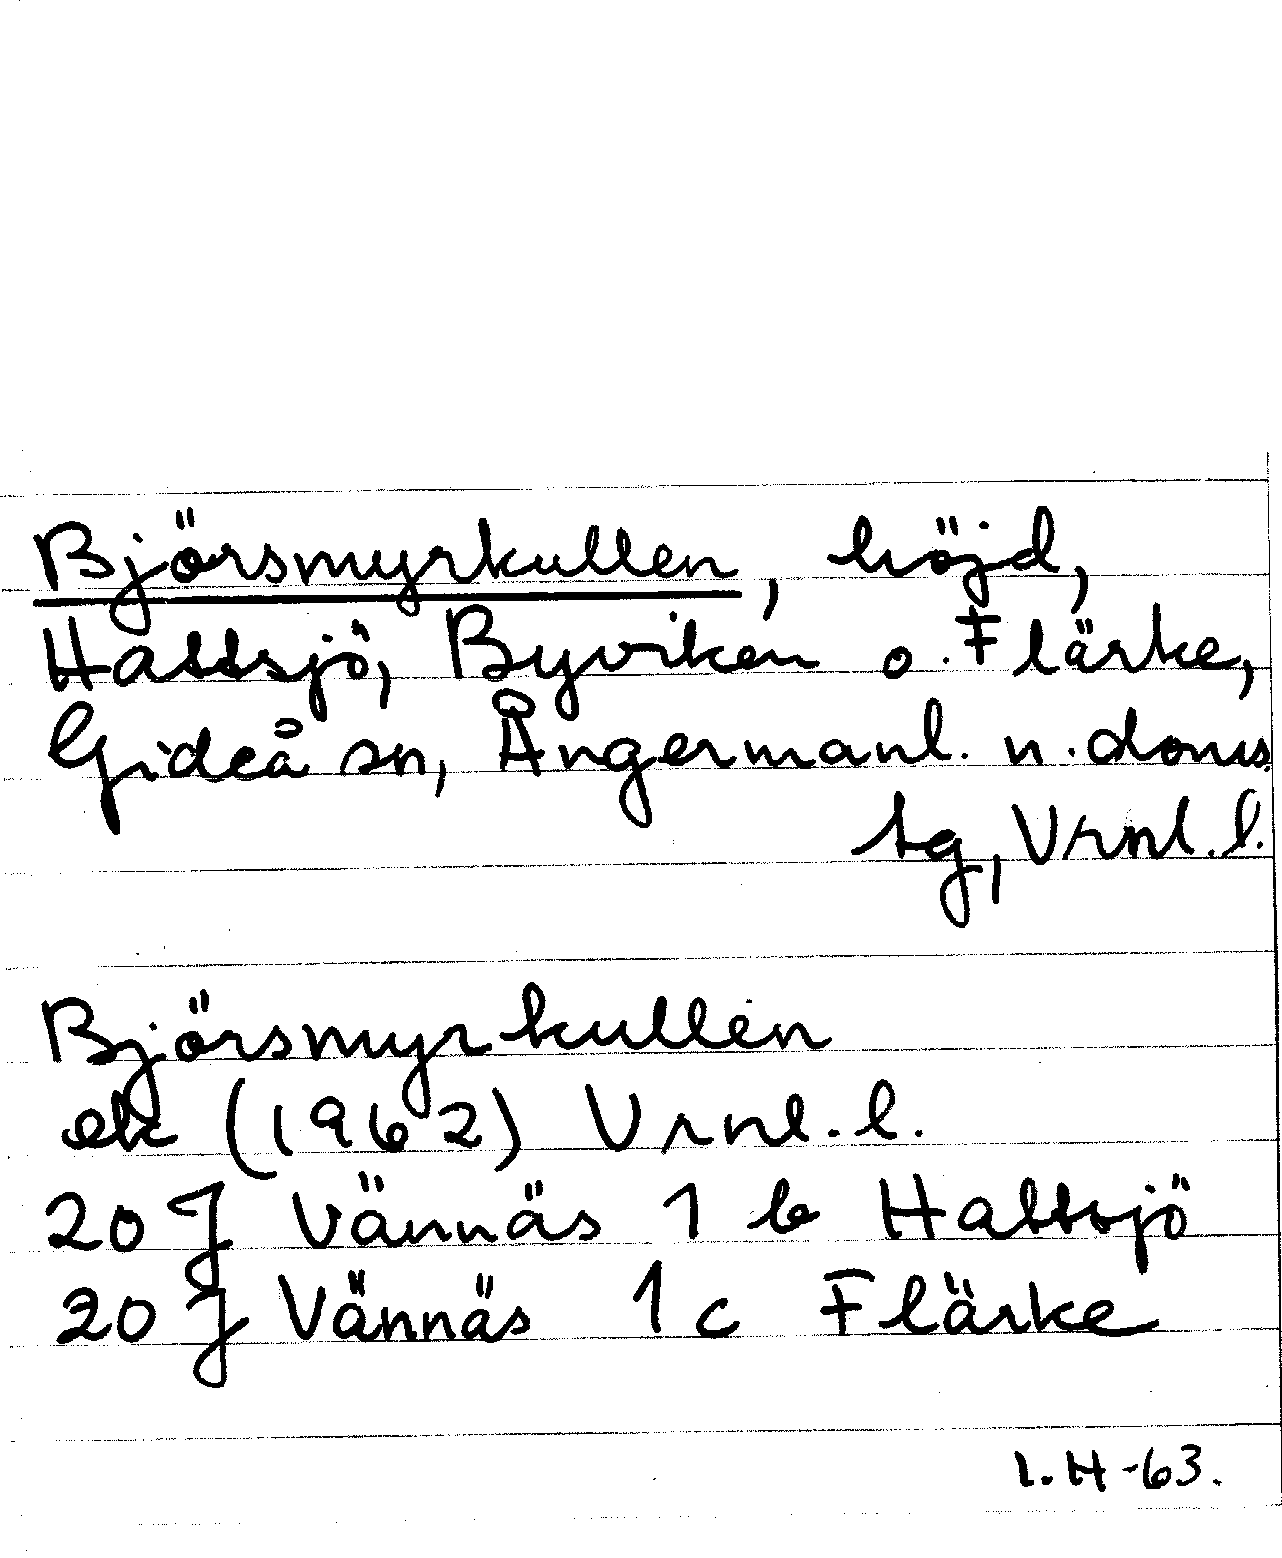 Björsmyrkullen, höjd,
Hattsjö, Byviken o. Flärke,
Gideå sn, Ångermanl. n. doms.
tg, Vrnl. l.
Björsmyrkullen
ek (1962) Vrnl. l.
20 J Vännäs 1 b Hattsjö
20 J Vännäs 1 c Flärke
I. H -63.